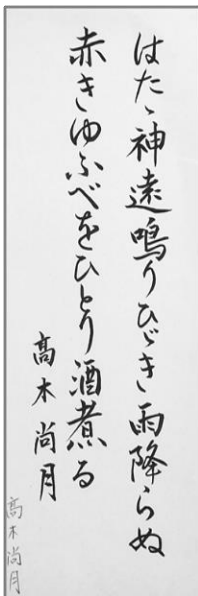 はたゝ神遠鳴りひゞき雨降らぬ
赤きゆふべをひとり酒煮る
髙木尚月
髙木尚月